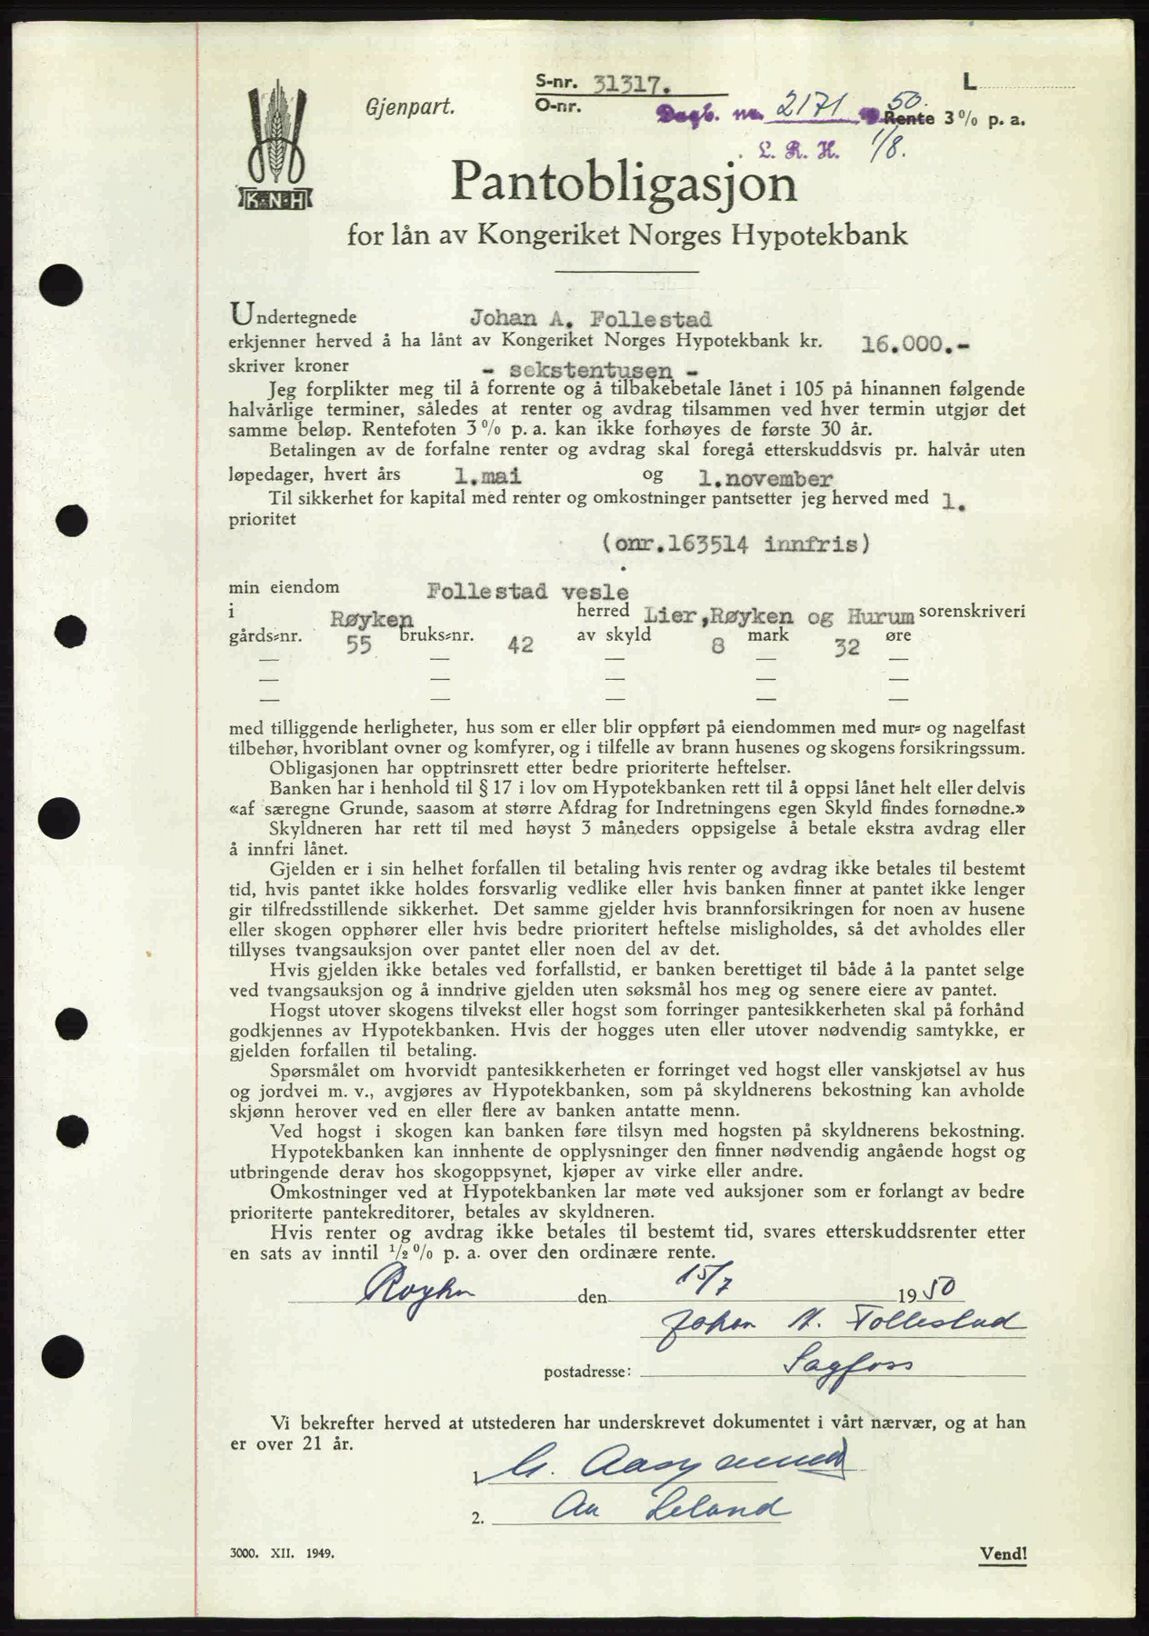 S-nr. 31317.
L
Gjenpart.
O-nr.
Dagb. nr. 2171 50.
Rente 3% p. a.
L. R. H. 1/8.
K·N·H
Pantobligasjon
for lån av Kongeriket Norges Hypotekbank
Undertegnede Johan A. Follestad
erkjenner herved å ha lånt av Kongeriket Norges Hypotekbank kr. 16.000.-
skriver kroner - sekstentusen -
Jeg forplikter meg til å forrente og å tilbakebetale lånet i 105 på hinannen følgende
halvårlige terminer, således at renter og avdrag tilsammen ved hver termin utgjør det
samme beløp. Rentefoten 3% p. a. kan ikke forhøyes de første 30 år.
Betalingen av de forfalne renter og avdrag skal foregå etterskuddsvis pr. halvår uten
løpedager, hvert års 1.mai og 1.november
Til sikkerhet for kapital med renter og omkostninger pantsetter jeg herved med 1.
prioritet
(onr.163514 innfris)
min eiendom Follestad vesle
i Røyken herred Lier,Røyken og Hurum sorenskriveri
gårds-nr. 55 bruks-nr. 42 av skyld 8 mark 32 øre
— — — — —
— — — — —
— — — — —
med tilliggende herligheter, hus som er eller blir oppført på eiendommen med mur- og nagelfast
tilbehør, hvoriblant ovner og komfyrer, og i tilfelle av brann husenes og skogens forsikringssum.
Obligasjonen har opptrinsrett etter bedre prioriterte heftelser.
Banken har i henhold til § 17 i lov om Hypotekbanken rett til å oppsi lånet helt eller delvis
«af særegne Grunde, saasom at større Afdrag for Indretningens egen Skyld findes fornødne.»
Skyldneren har rett til med høyst 3 måneders oppsigelse å betale ekstra avdrag eller
å innfri lånet.
Gjelden er i sin helhet forfallen til betaling hvis renter og avdrag ikke betales til bestemt
tid, hvis pantet ikke holdes forsvarlig vedlike eller hvis banken finner at pantet ikke lenger
gir tilfredsstillende sikkerhet. Det samme gjelder hvis brannforsikringen for noen av husene
eller skogen opphører eller hvis bedre prioritert heftelse misligholdes, så det avholdes eller
tillyses tvangsauksjon over pantet eller noen del av det.
Hvis gjelden ikke betales ved forfallstid, er banken berettiget til både å la pantet selge
ved tvangsauksjon og å inndrive gjelden uten søksmål hos meg og senere eiere av pantet.
Hogst utover skogens tilvekst eller hogst som forringer pantesikkerheten skal på forhånd
godkjennes av Hypotekbanken. Hvis der hogges uten eller utover nødvendig samtykke, er
gjelden forfallen til betaling.
Spørsmålet om hvorvidt pantesikkerheten er forringet ved hogst eller vanskjøtsel av hus
og jordvei m. v., avgjøres av Hypotekbanken, som på skyldnerens bekostning kan avholde
skjønn herover ved en eller flere av banken antatte menn.
Ved hogst i skogen kan banken føre tilsyn med hogsten på skyldnerens bekostning.
Hypotekbanken kan innhente de opplysninger den finner nødvendig angående hogst og
utbringende derav hos skogoppsynet, kjøper av virke eller andre.
Omkostninger ved at Hypotekbanken lar møte ved auksjoner som er forlangt av bedre
prioriterte pantekreditorer, betales av skyldneren.
Hvis renter og avdrag ikke betales til bestemt tid, svares etterskuddsrenter etter
en sats av inntil 1/2% p. a. over den ordinære rente.
Røyken den 15/7 1950
Johan A. Follestad
postadresse: Sagfoss
Vi bekrefter herved at utstederen har underskrevet dokumentet i vårt nærvær, og at han
er over 21 år.
1
2. Leland
3000. XII. 1949.
Vend!